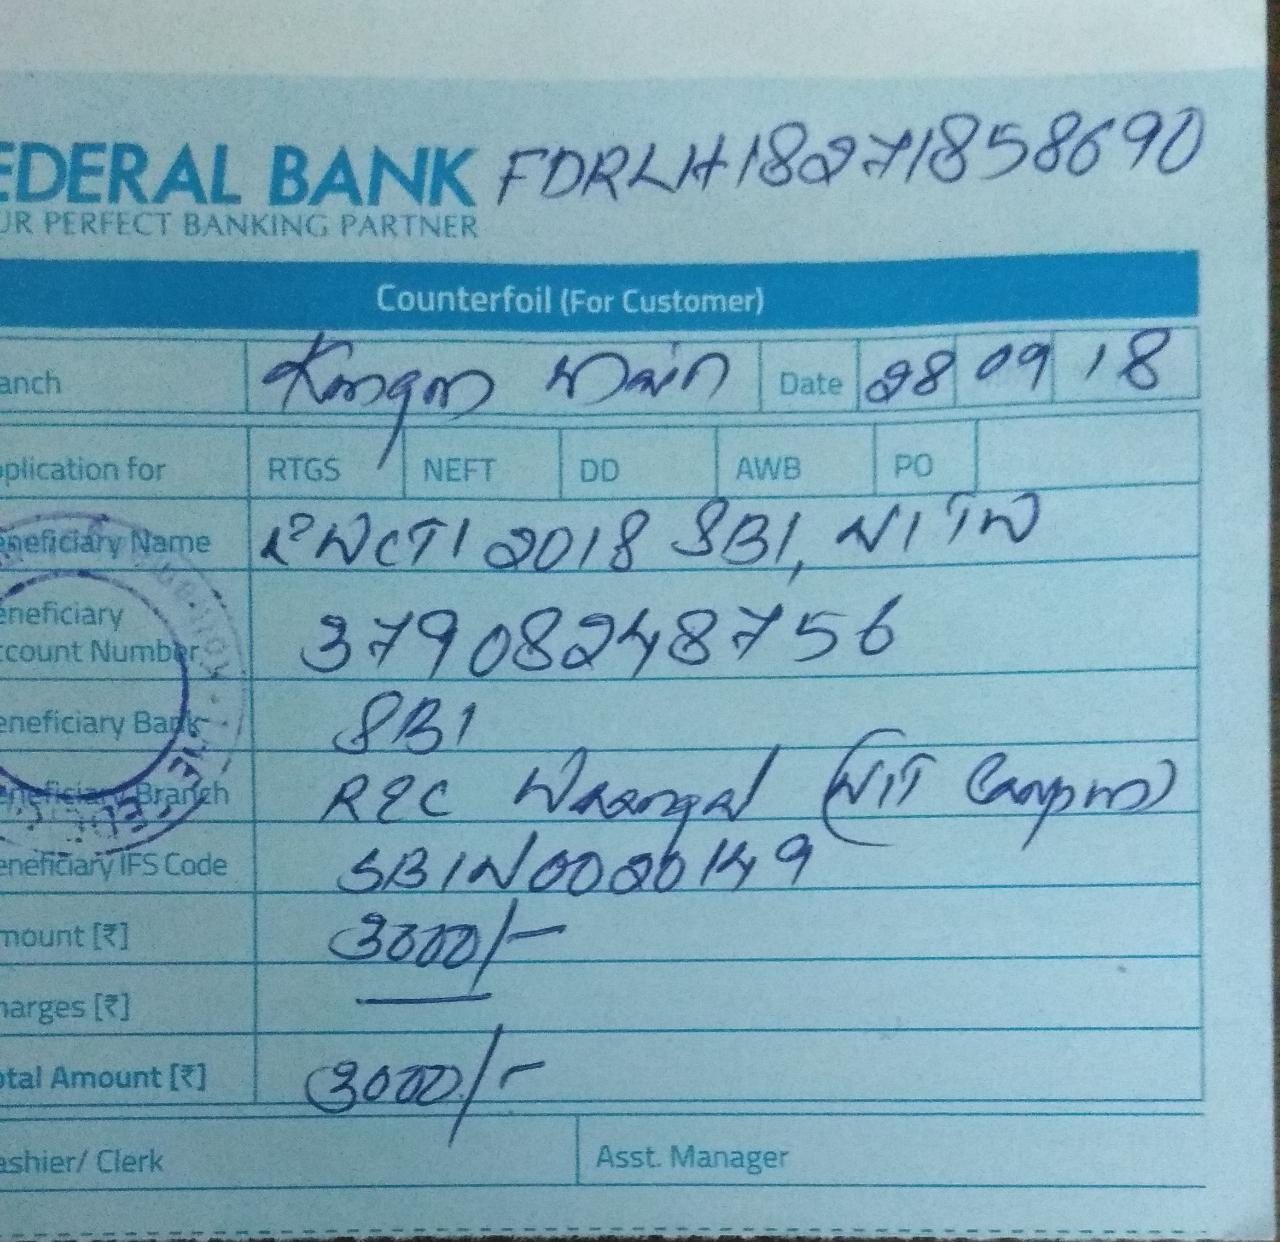 EDERAL BANK FDRLH18271858690
UR PERFECT BANKING PARTNER
Counterfoil (For Customer)
anch Main Date 28 09 18
plication for RTGS NEFT DD AWB PO
eneficiary Name 2018 SBI, NITW
eneficiary
ccount Number 37908248756
eneficiary Bank SBI
eneficiary Branch REC Warangal (NIT Campus)
eneficiary IFS Code SBIN0020149
mount [₹] 3000/-
harges [₹] —
otal Amount [₹] 3000/-
ashier/ Clerk Asst. Manager